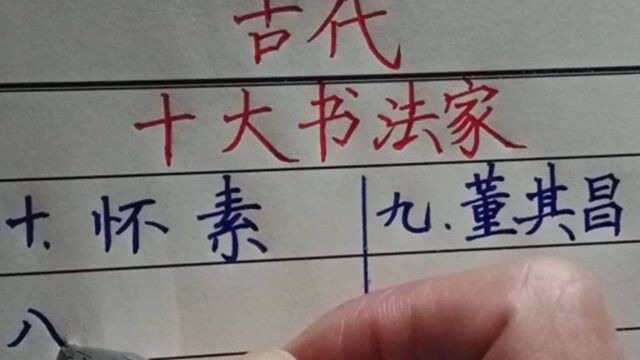 古代
十大书法家
十.怀素 九.董其昌
八